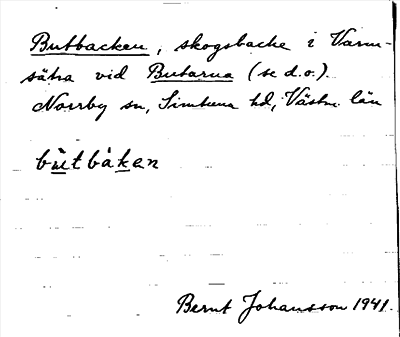 Butbacken, skogsbacke i Varm-
sätra vid Butarna (se d.o.).
Norrby sn, Simtuna hd, Västm. län
bu̲tbak̲en
Bernt Johansson 1941.